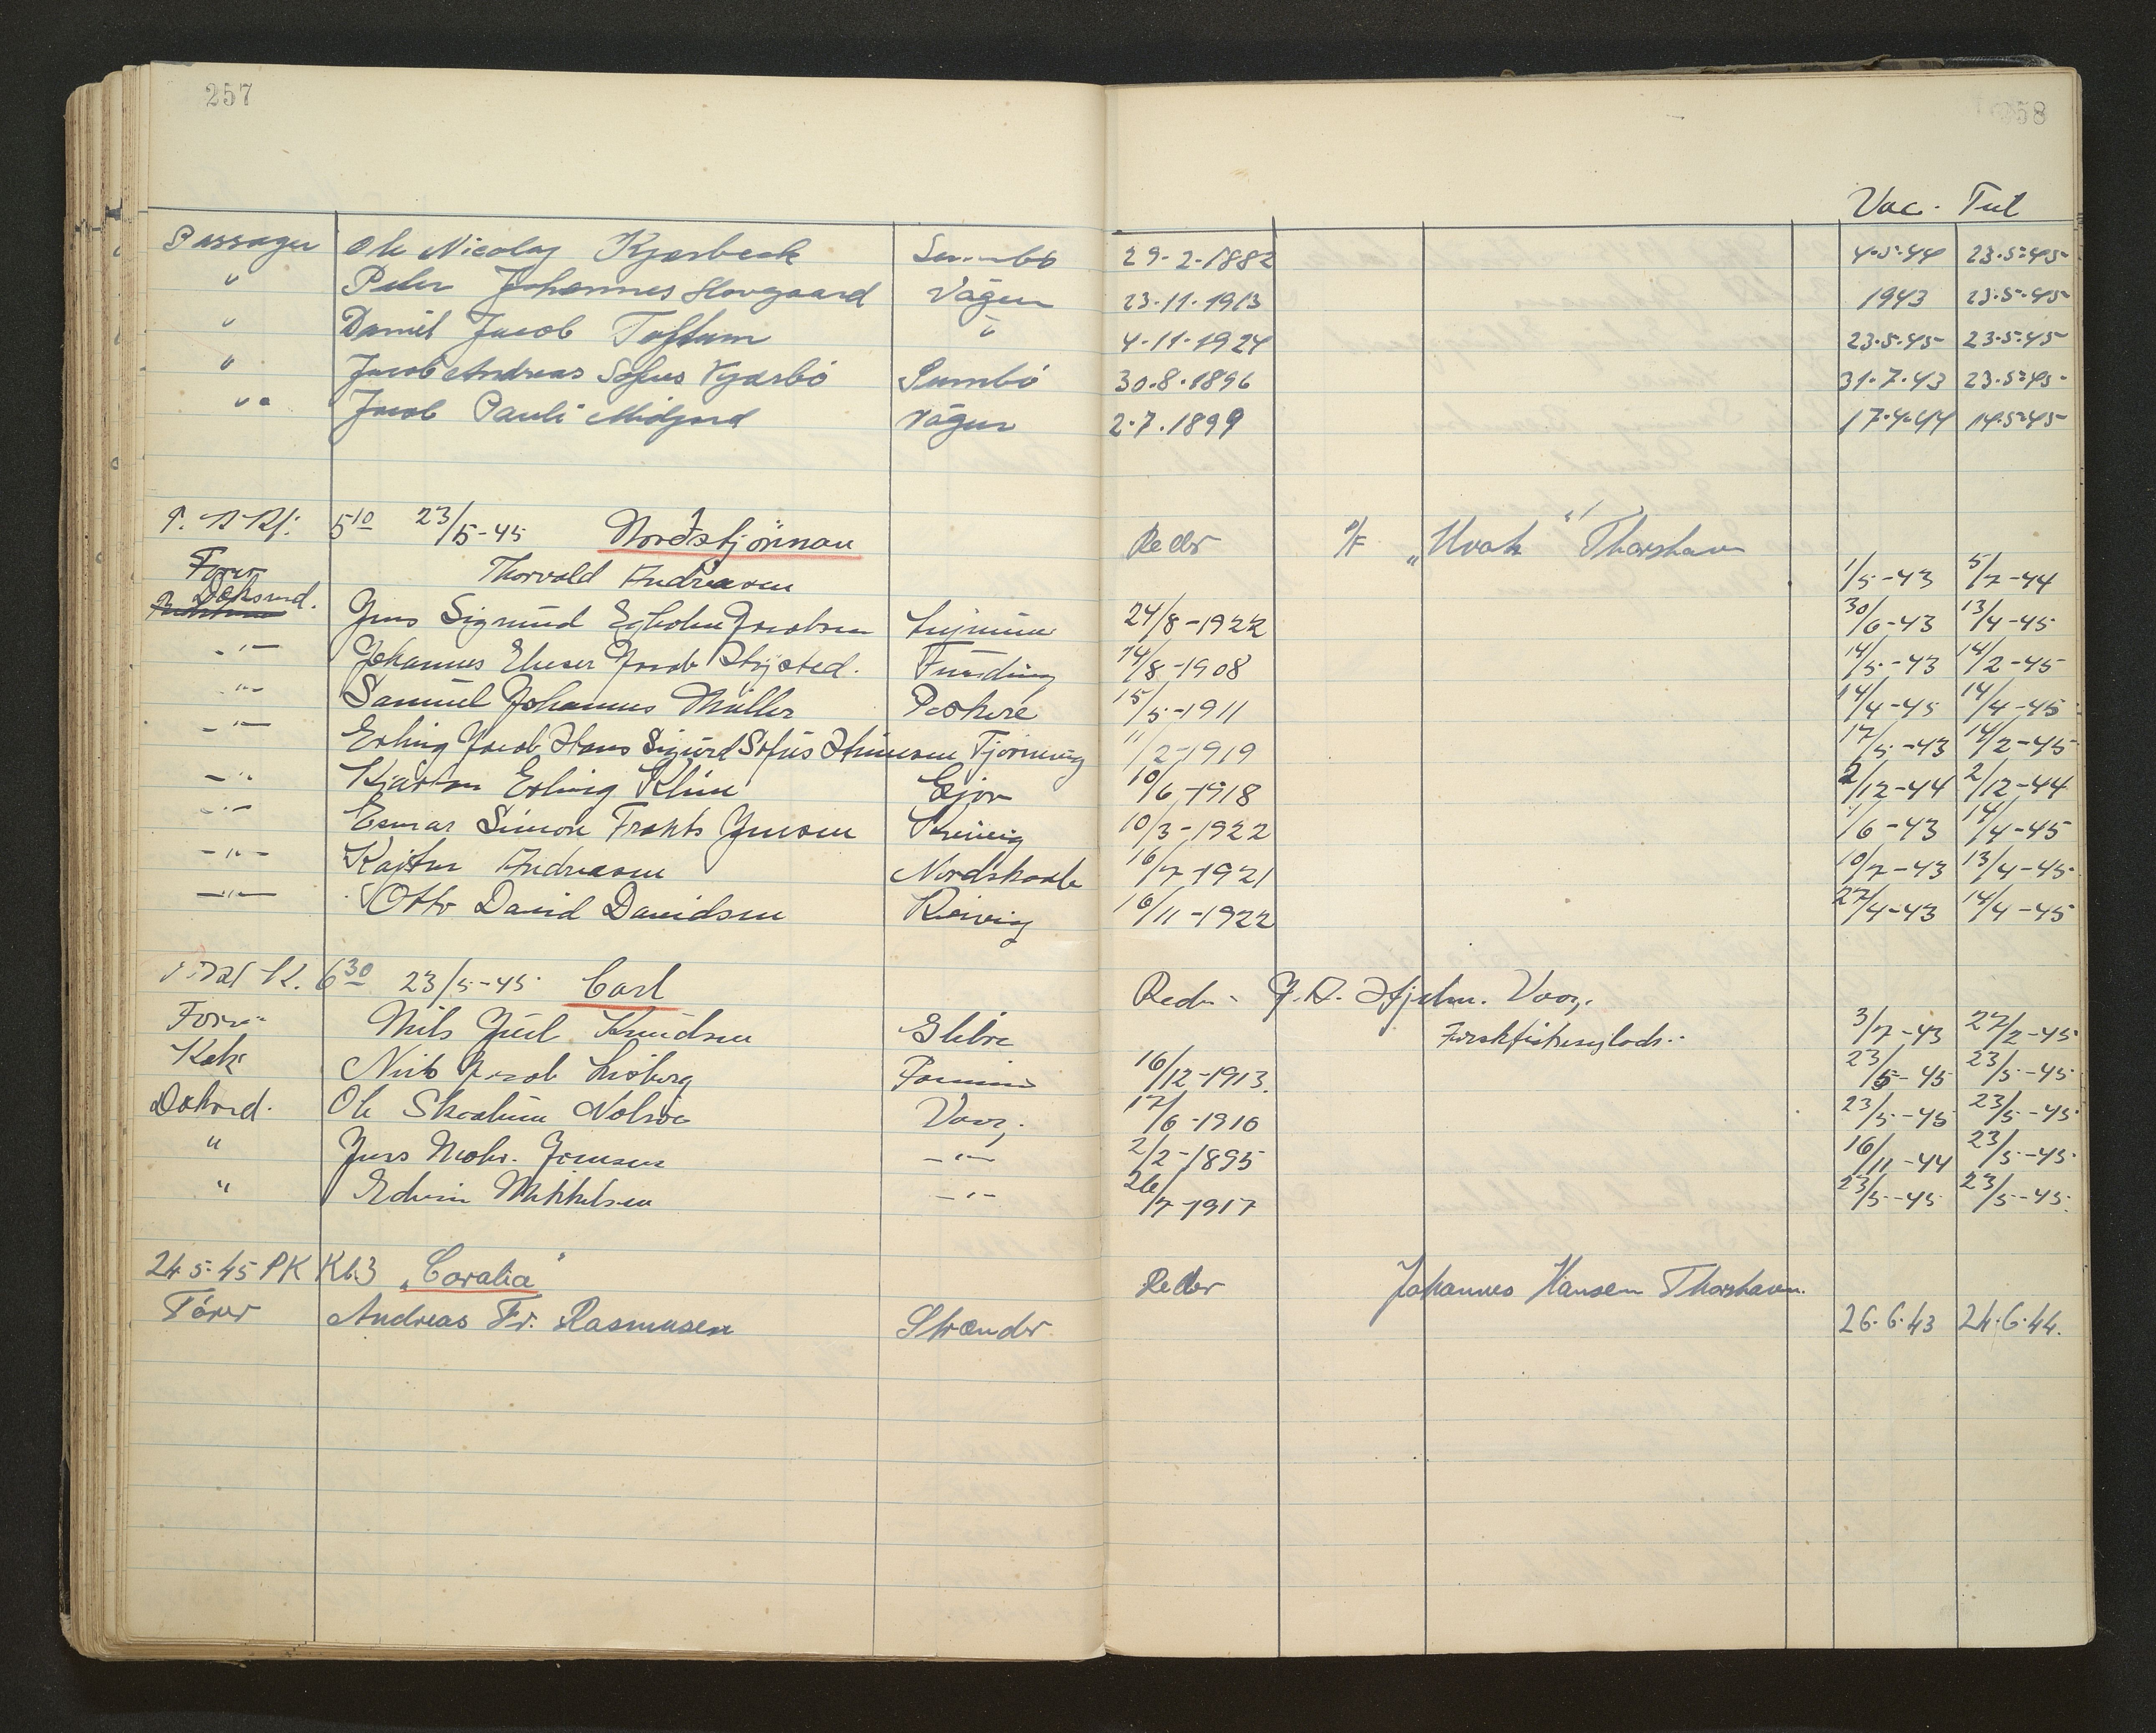 257
258
Vac. Tut
Passager Ole Nicolaj Kjærbeck Sumbø 29-2-1882 4.5.44 23.5.45
" Peter Johannes Hovgaard Vågur 23.11.1913 1943 23.5.45
" Daniel Jacob Toftum " 4.11.1924 23.5.45 23.5.45
" Jacob Andreas Sofus Kjærbö Sumbö 30.8.1896 31.7.43 23.5.45
" Jacob Pauli Midjord Vágur 2.7.1899 17.4.44 14.5.45
5 10 23/5-45 Nordstjörnan Reder P/F "Hvoh" Thorshavn
Fører Thorvald Andreasen 1/5-43 5/7-44
Dæksmd. Jens Sigmund Egholm Jacobsen 24/8-1922 30/6-43 13/4-45
-"- Johannes Elieser Jacob Funding 14/8-1908 14/5-43 14/2-45
-"- Samuel Johannes Müller 15/5-1911 14/4-45 14/4-45
-"- Erling Jacob Hans Sigurd Sofus Tjørnuvig 11/2-1919 17/5-43 14/2-45
-"- Kjartan Erling Klein Ejde 10/6-1918 2/12-44 2/12-44
-"- Esmar Simon Frants Jensen 10/3-1922 1/6-43 14/4-45
-"- Andreasen Nordskaale 16/7-1921 10/7-43 13/4-45
-"- Otto David Davidsen 16/11-1922 27/4-43 14/4-45
6 30 23/5-45 Carl Reder Vaag.
Fører Niels Juel Knudsen Glibre Ferskfiskesejlads. 3/7-43 27/2-45
Kok Niels Jacob 16/12-1913. 23/5-45 23/5-45
Dæksmd. Ole Skaalum Nolsøe Vaag. 17/6-1910 23/5-45 23/5-45
" Jens Mohr. Joensen -"- 2/2-1895 16/11-44 23/5-45
" Edvin Mikkelsen -"- 26/7-1917 23/5-45 23/5-45
24.5.45 PK Kl.3 "Coralia" Reder Johannes Hansen Thorshavn.
Fører Andreas Fr. Rasmussen Strænder 26.6.43 24.6.44.